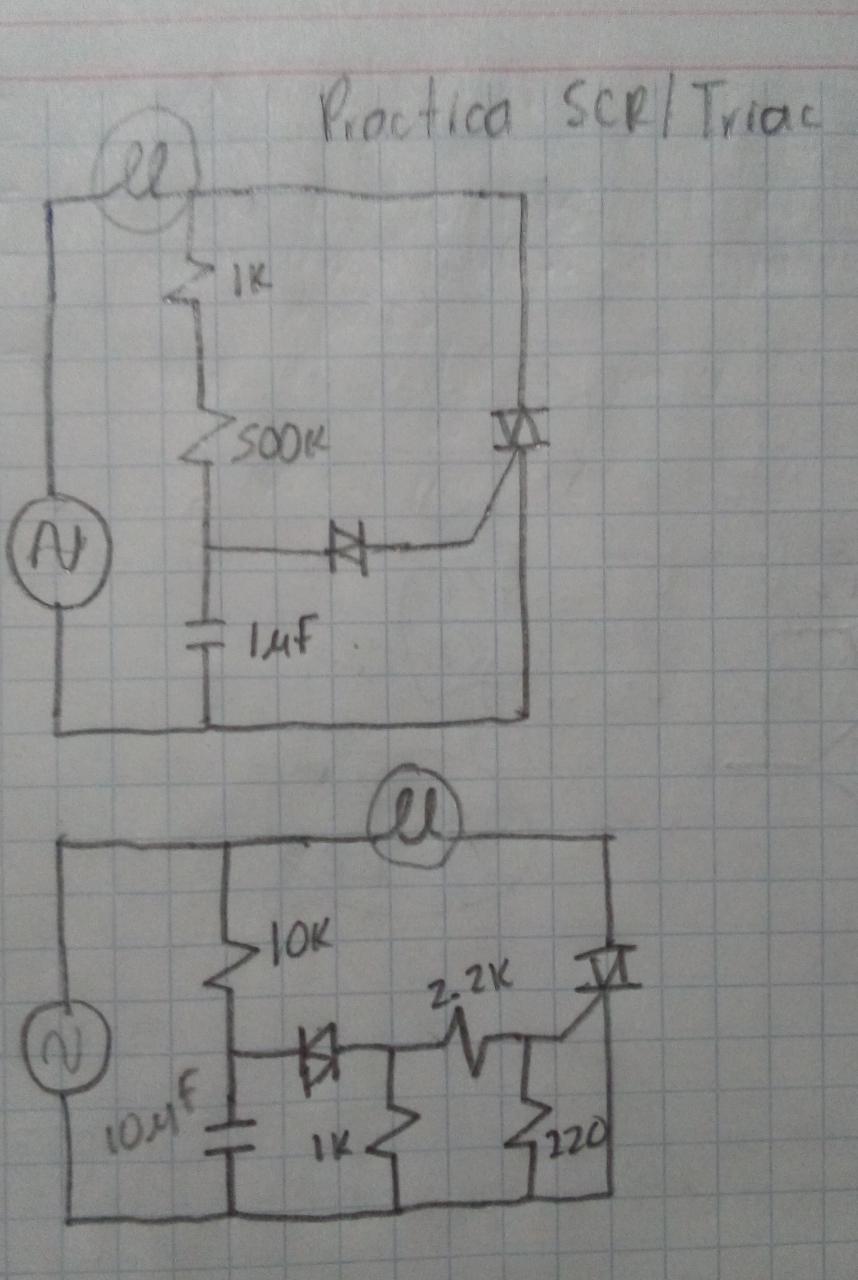 Practica SCR/Triac
1K
500K
1µF
10K
2.2K
10µF
1K
220